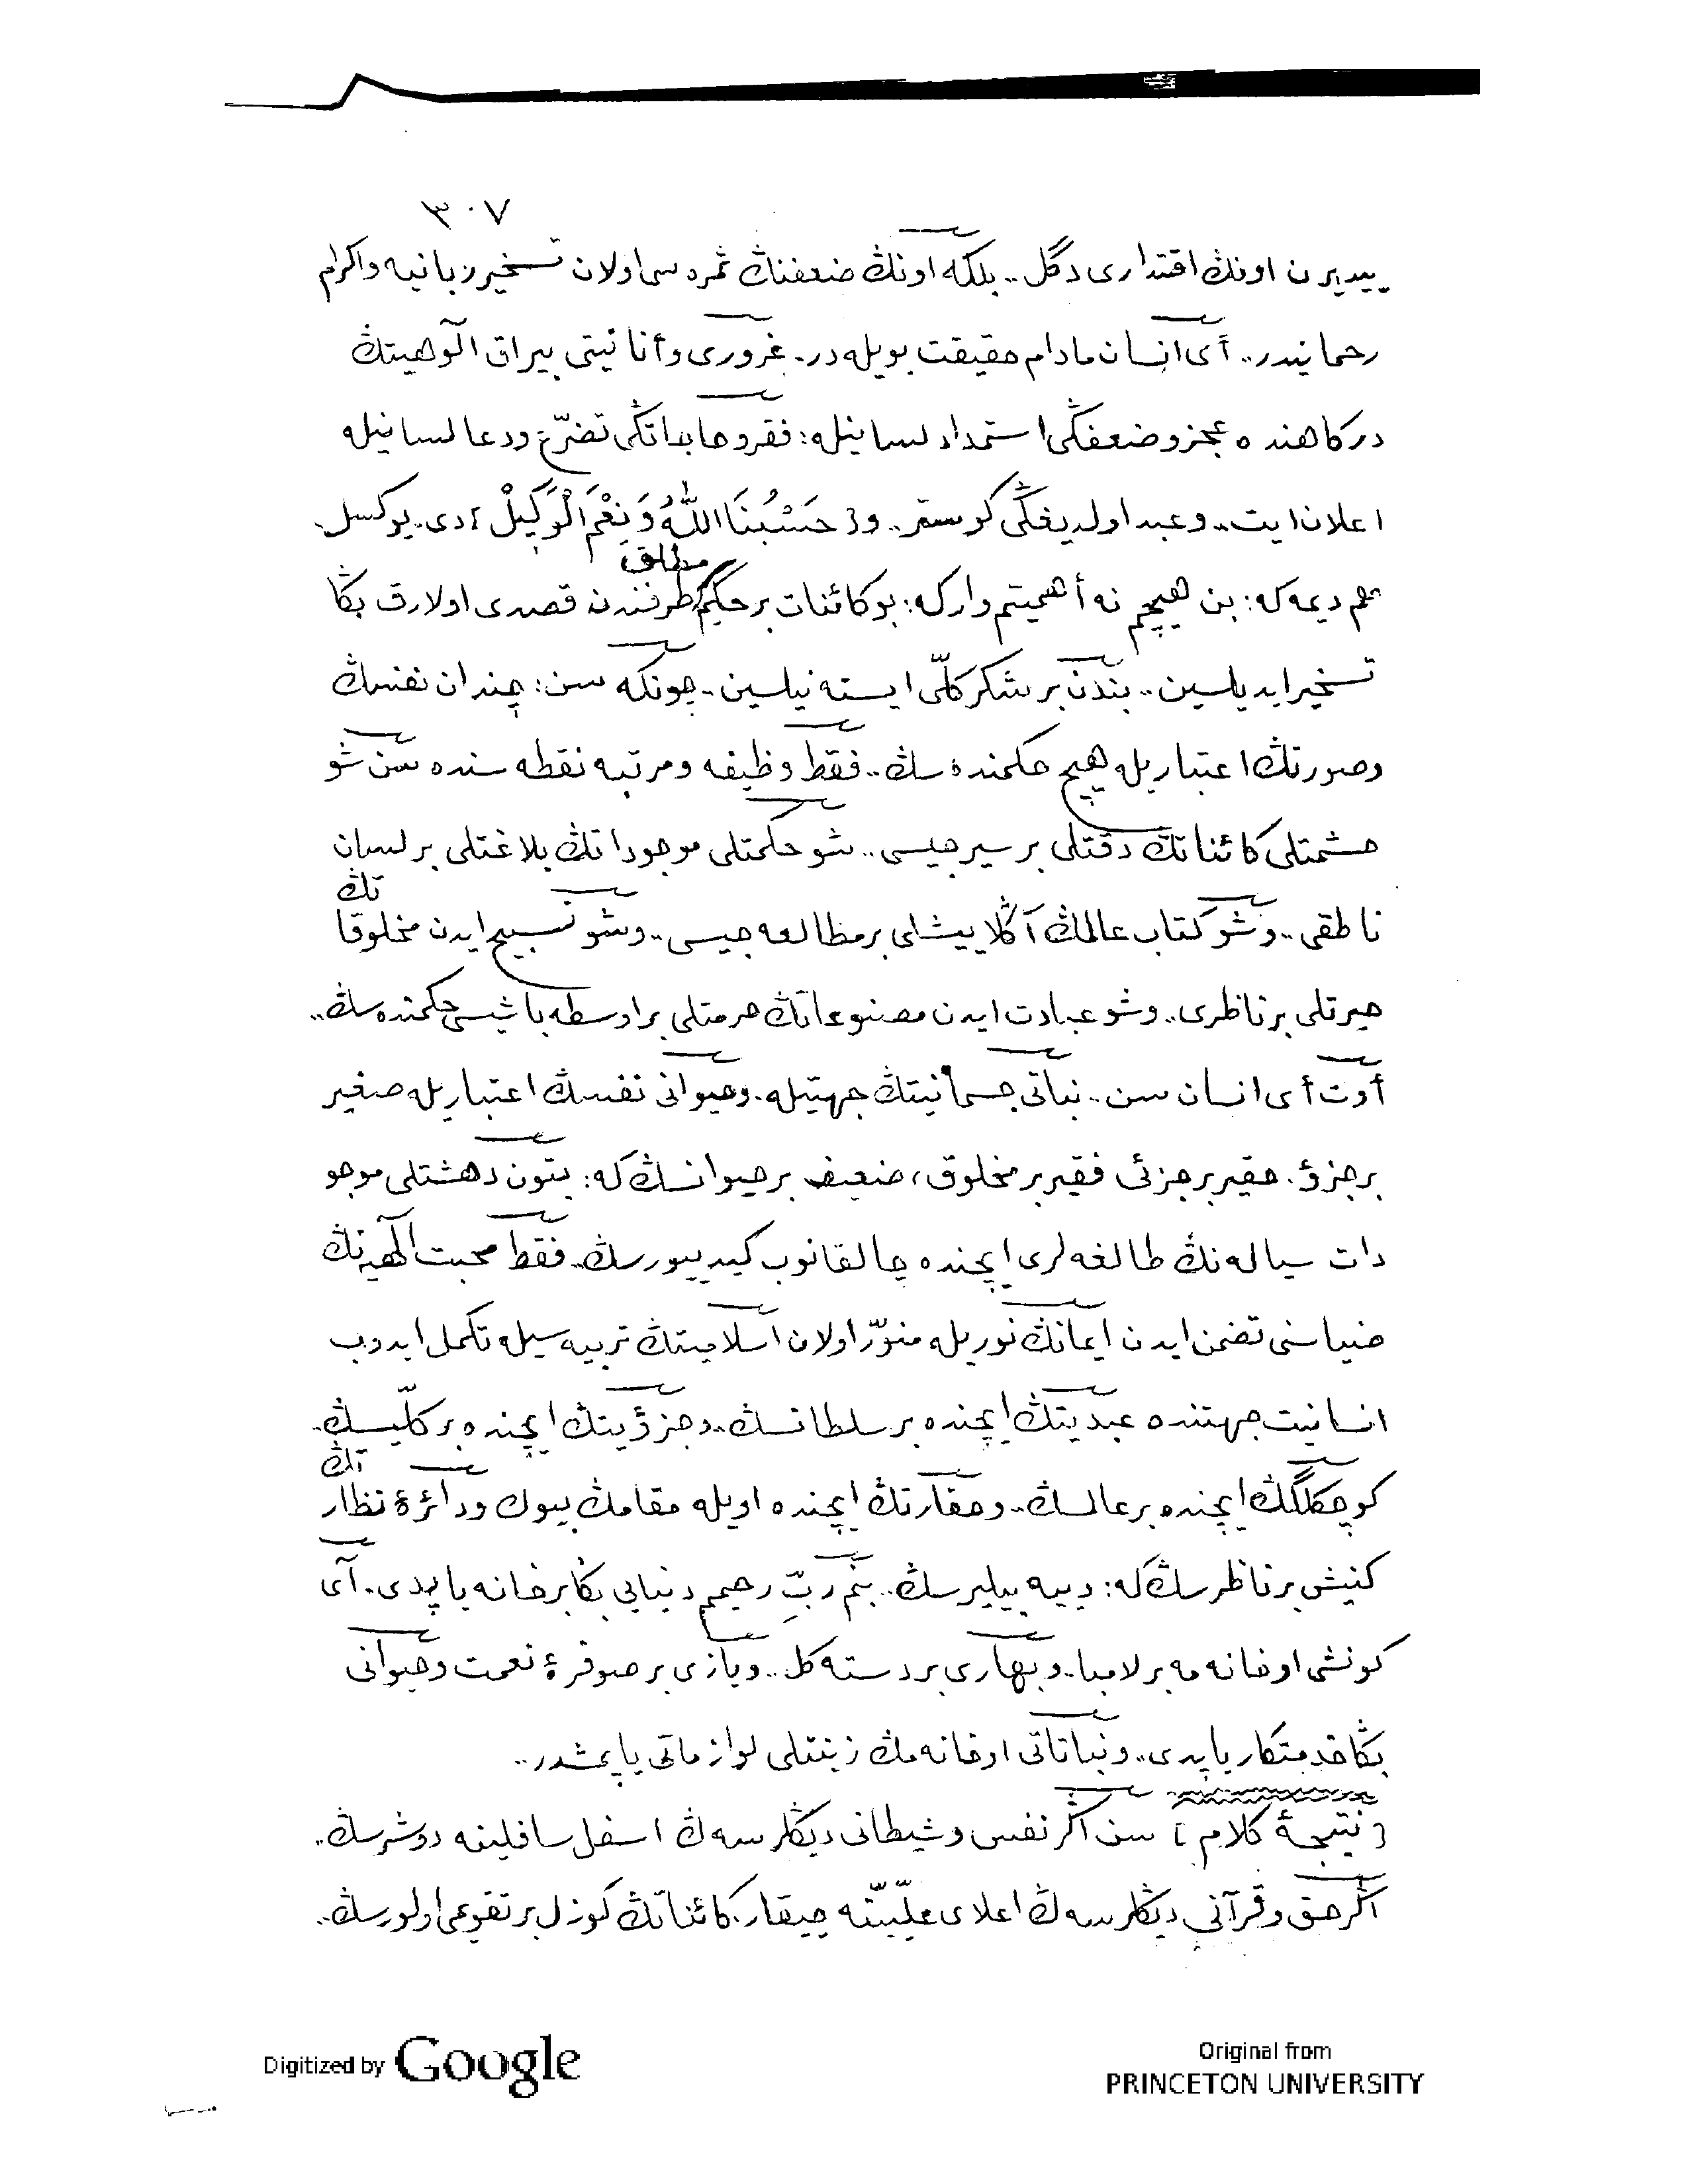 ٣٠٧
ييديرن اونڭ اقتدارى دگل.. بلكه اونڭ ضعفنڭ ثمره سى اولان تسخير ربانيه واكرام
رحمانيدر.. أى انسان مادام حقيقت بويله در. غرورى وأنانيتى بيراق الوهيتڭ
دركاهنده عجز وضعفڭى استمداد لسانيله: فقر وحاجاتڭى تضرّع ودعا لسانيله
اعلان ايت.. وعبد اولديغڭى كوستر.. و{ حَسْبُنَا اللّٰهُ وَ نِعْمَ الْوَكِيلْ } دى. يوكسل.
هم ديمه كه: بن هيچم نه أهميتم وار كه: بو كائنات بر حكيم مطلق طرفندن قصدى اولارق بڭا
تسخير ايديلسين.. بندن بر شكر كلّى ايسته نيلسين.. چونكه سن: چندان نفسڭ
وصورتڭ اعتباريله هيچ حكمنده سڭ.. فقط وظيفه ومرتبه نقطه سنده سن شو
حشمتلى كائناتڭ دقتلى بر سيرجيسى.. شو حكمتلى موجوداتڭ بلاغتلى بر لسان
ناطقى.. وشو كتاب عالمڭ آڭلاييشلى بر مطالعه جيسى.. وشو تسبيح ايدن مخلوقاتڭ
حيرتلى بر ناظرى.. وشو عبادت ايدن مصنوعاتڭ حرمتلى بر اوسطه باشيسى حكمنده سڭ..
أوت أى انسان سن.. نباتى جسمانيتڭ جهتيله. وحيوانى نفسڭ اعتباريله صغير
بر جزؤ. حقير بر جزئى فقير بر مخلوق، ضعيف بر حيوانسڭ كه: بتون دهشتلى موجو
دات سياله نڭ طالغه لرى ايچنده چالقانوب كيدييورسڭ. فقط محبت الٓهيه نڭ
ضياسنى تضمن ايدن ايمانڭ نوريله منوّر اولان اسلاميتڭ تربيه سيله تكمل ايدوب
انسانيت جهتنده عبديتڭ ايچنده بر سلطانسڭ.. وجزؤيتڭ ايچنده بر كلّيسڭ.
كوچكلگڭ ايچنده بر عالمسڭ.. وحقارتڭ ايچنده اويله مقامڭ بيوك ودائرهٔ نظارتڭ
كنيش بر ناظرسڭ كه: دييه بيليرسڭ.. بنم ربّ رحيمم دنيايى بڭا بر خانه ياپدى. آى
كونشى او خانه مه بر لامبا.. و بهارى بر دسته كل.. ويازى بر صوفرهٔ نعمت وحيوانى
بڭا خدمتكار ياپدى.. ونباتاتى او خانه مڭ زينتلى لوازماتى ياپمشدر..
{ نتيجهٔ كلام } سن اگر نفس وشيطانى ديڭلرسه ڭ اسفل سافلينه دوشرسڭ.
اگر حق وقرآنى ديڭلرسه ڭ اعلاى علّيينه چيقار. كائناتڭ كوزل بر تقويمى اولورسڭ..
Digitized by Google
Original from
PRINCETON UNIVERSITY